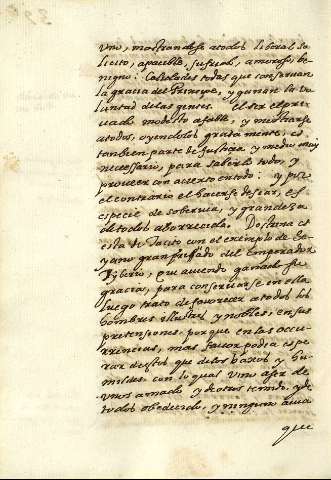 uno, mostrandose atodos liberal, so
licito, apacible, jusual, amoroso, be
nigno: Calidades todas que conseruan
la gracia del Principe, y ganan la vo
luntad delas gentes. El ser el pri
uado modesto afable, y mostrarse
atodos, oyendolos gratamente, es
tambien parte de Justicia y medio muy
necessario, para saberlo todo, y
proueer con acierto entodo: y por
el contrario el hacerse desear, es
especie de soberuia, y grandeza
de todos aborrecida. Doctrina es
esta de Tacito con el exemplo de Se
yano gran priuado del Emperador
Tyberio, que auiendo ganado su
gracia, para conseruarse en ella
luego trato de fauorecer atodos los
hombres illustres y nobles, en sus
pretensiones: porque en las occu
rrencias, mas fauor podia espe
rar destos que delos baxos y hu
mildes con lo qual vino aser de
unos amado y de otros temido, y de
todos obedecido, y ninguno auia
que